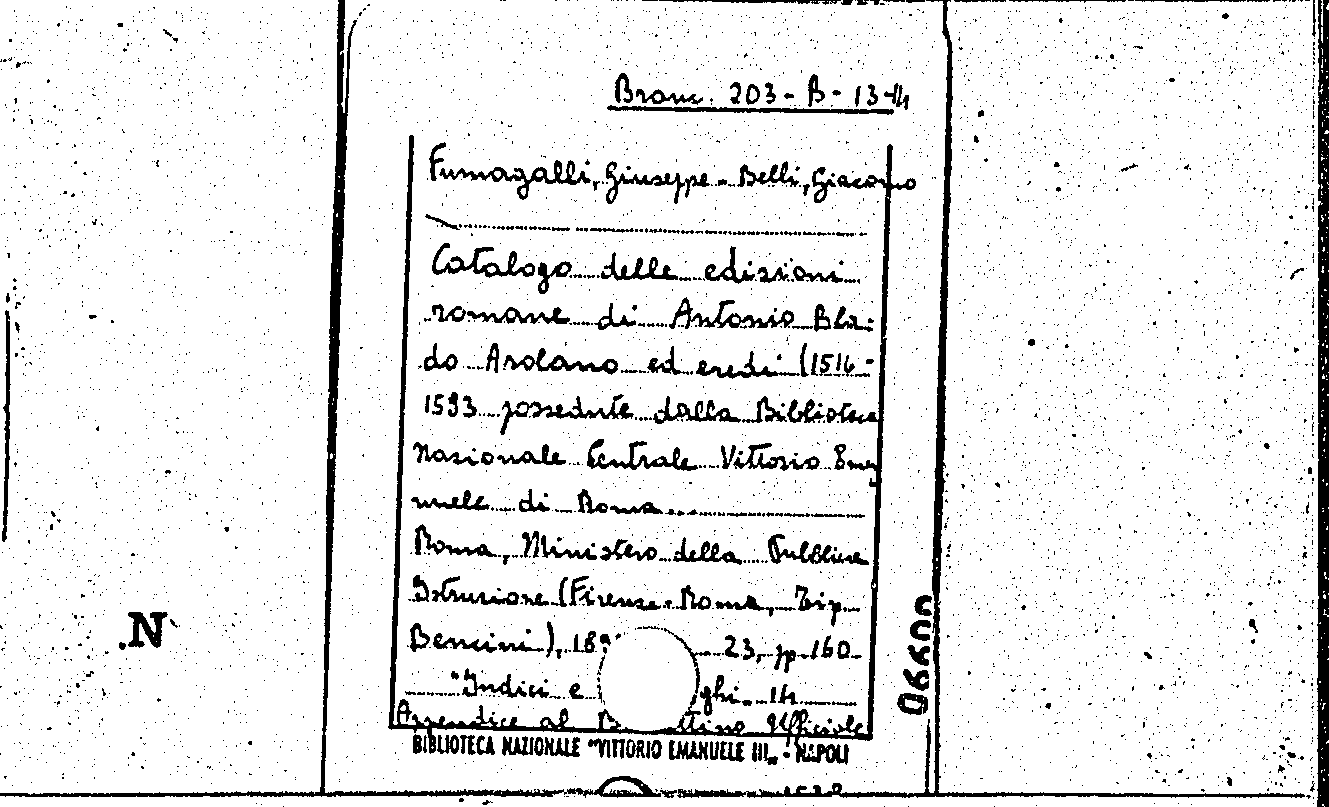 Branc. 203-B-13-14
Fumagalli, Giuseppe - Belli, Giacomo
Catalogo delle edizioni
romane di Antonio Bla-
do Asolano ed eredi (1516-
1593 possedute dalla Biblioteca
Nazionale Centrale Vittorio Ema
nuele di Roma...
Roma, Ministero della Pubblica
Istruzione (Firenze-Roma, Tip.
Bencini), 189 23, p. 160
"Indici e ghi. 14
Appendice al B ttino Ufficiale
BIBLIOTECA NAZIONALE "VITTORIO EMANUELE III" - NAPOLI
N